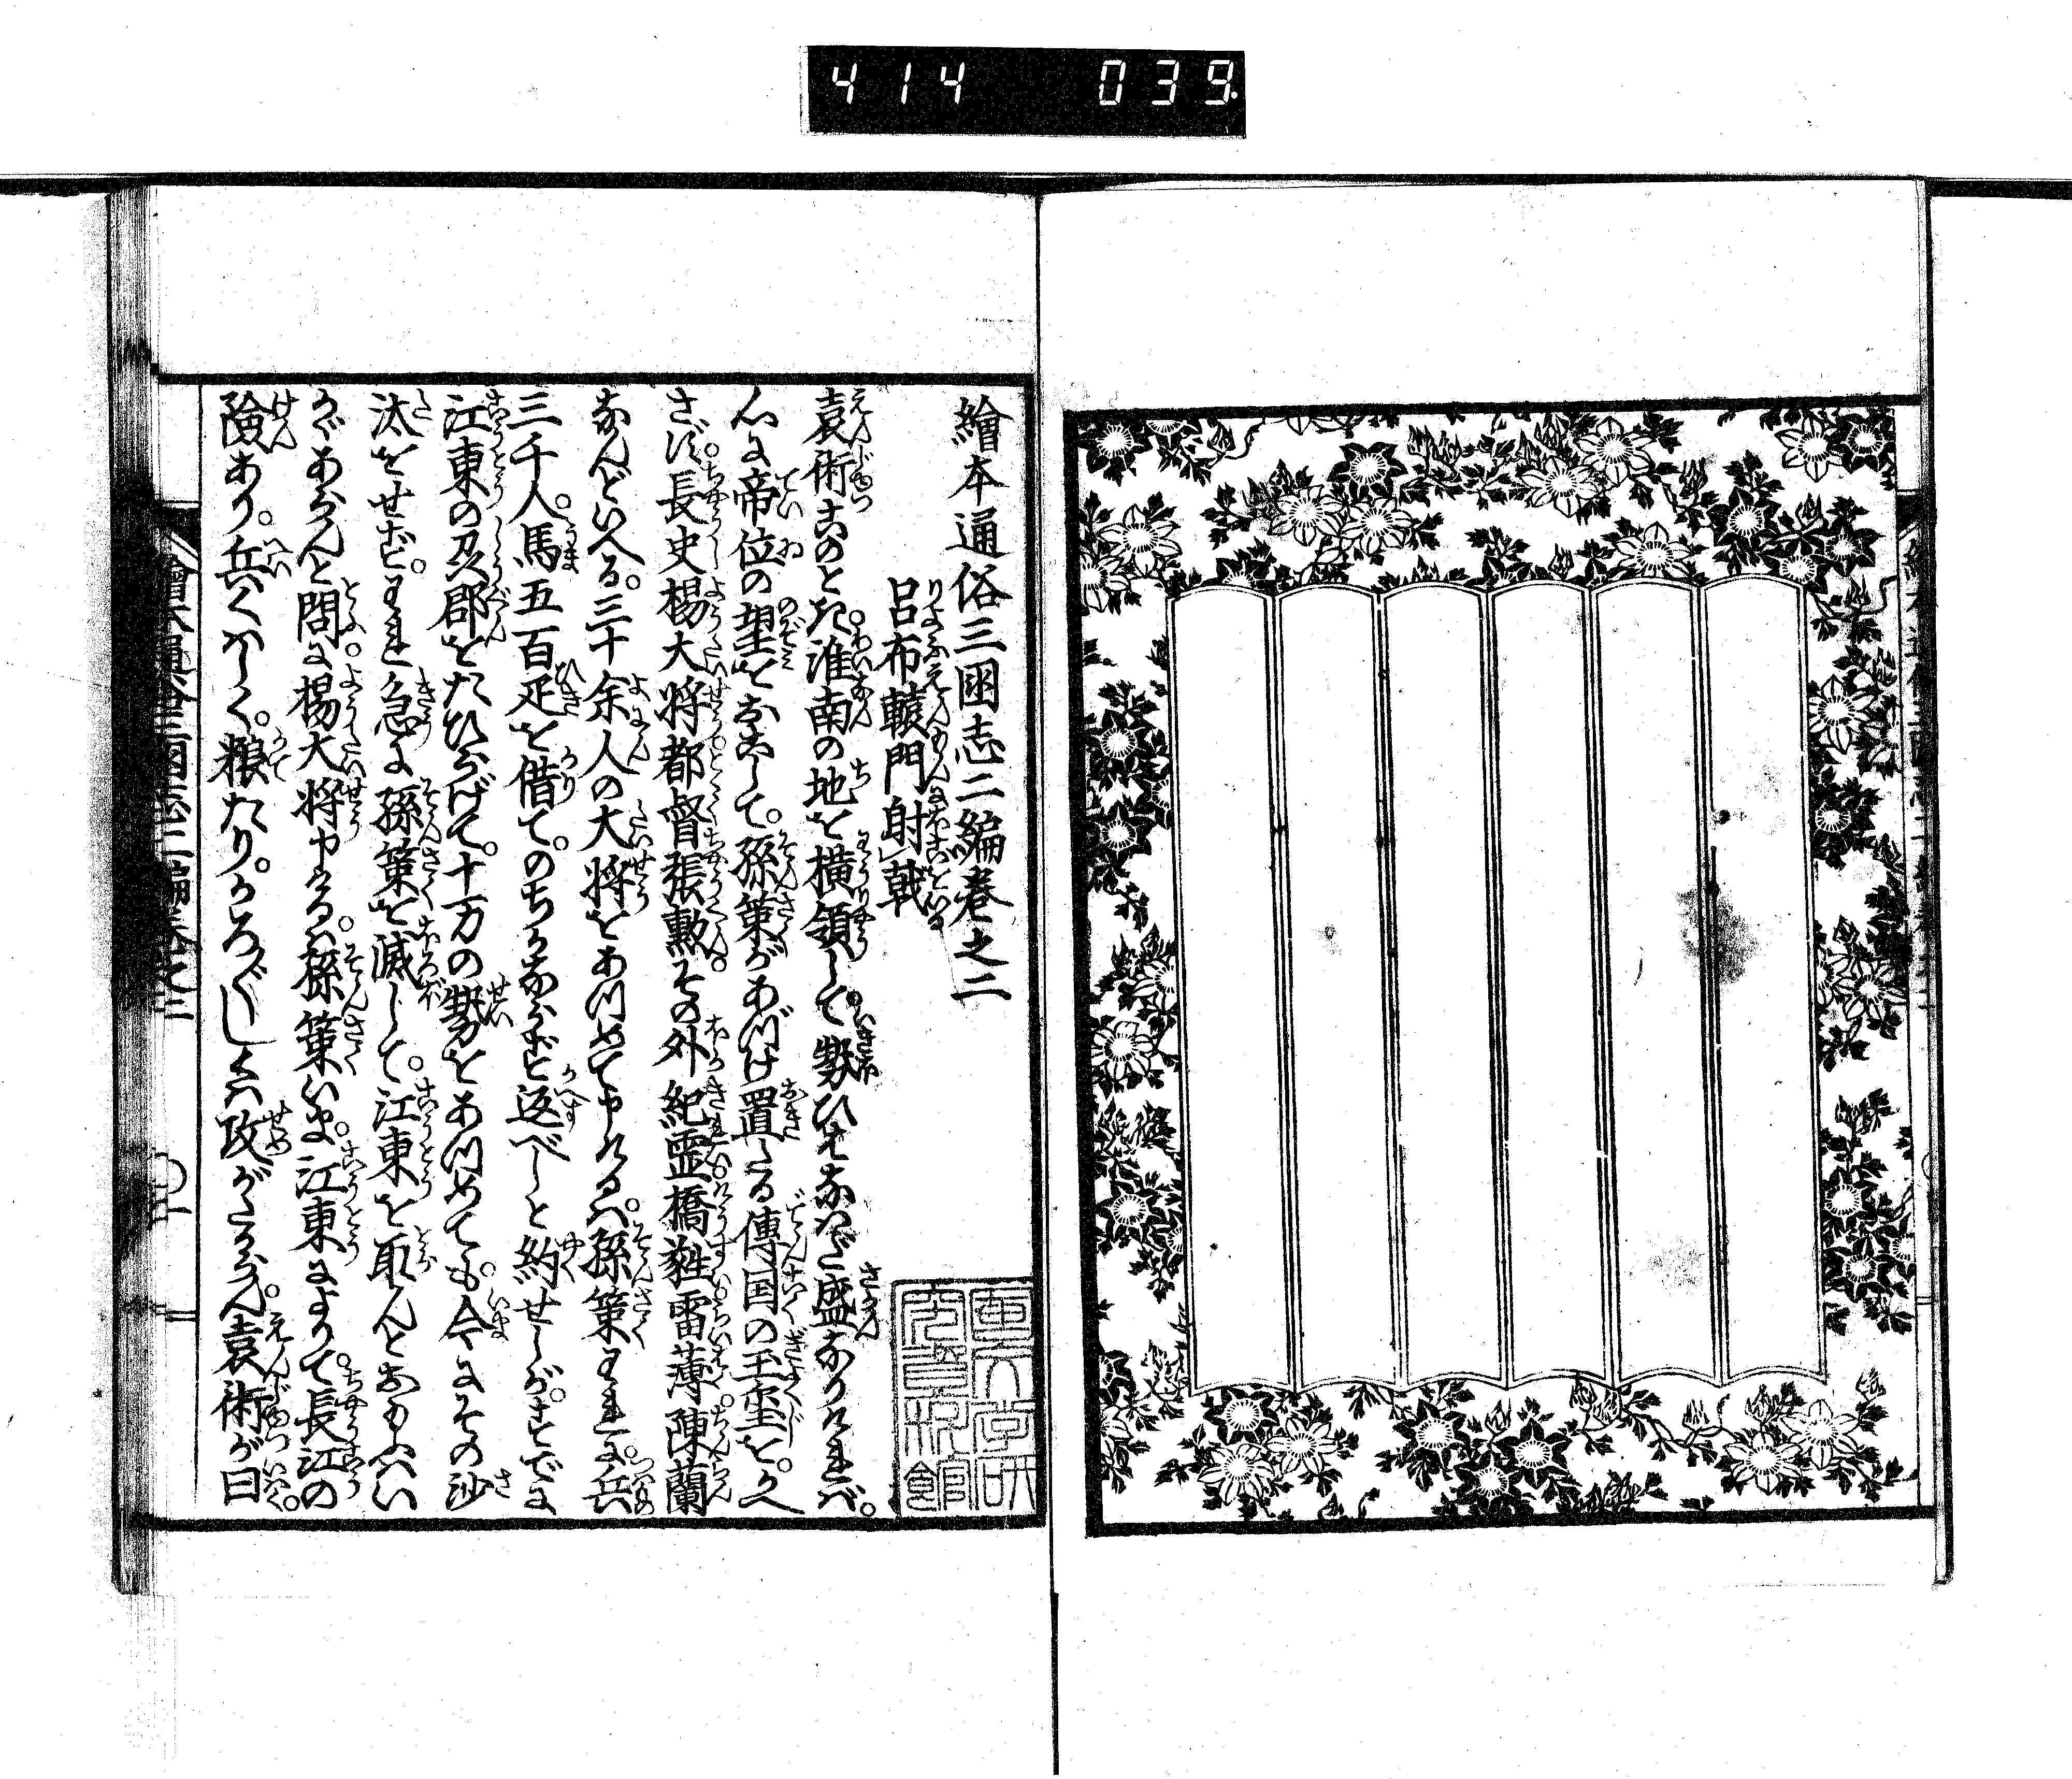 414 039
繪本通俗三國志二編卷之二
呂布轅門射戟
袁術このとき淮南の地を横領して勢ひはなはだ盛なりければ。
心に帝位の望をおこして。孫策があづけ置たる傳国の玉璽を。かへ
さず。長史楊大将都督張勲。その外紀霊橋蕤雷薄陳蘭
なんどいへる。三十余人の大将をあつめて申けるハ。孫策われに。兵
三千人。馬五百疋を借て。のちかならず返べしと約せしが。すでに
江東の及郡をたひらげて。十万の勢をあつめても。今にその沙
汰をせず。われ急に孫策を滅して。江東を取んとおもふハい
かゞあらんと問に。楊大将申けるハ。孫策いま。江東によりて。長江の
険あり。兵くハしく。粮たり。かろ〴〵しくハ攻がたからん。袁術が曰。
繪本通俗三国志二編卷之二